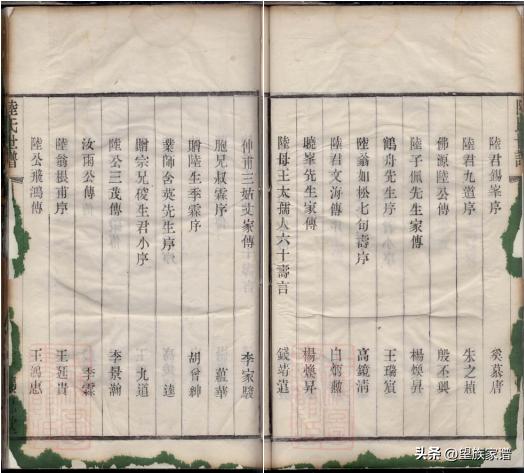 陸君錫峯序 奚慕唐
陸君九道序 朱之楨
佛源陸公傳 殷丕興
陸子佩先生家傳 楊煥昇
鶴舟先生序 王瑞賓
陸翁如松七旬壽序 高鏡清
陸君文海傳 白炳勲
曉峯先生家傳 楊煥昇
陸母王太孺人六十壽言 錢靖遠
仲甫三姑丈家傳 李家駿
胞兄叔霖序 蘊華
贈陸生季霖序 胡曾紳
業師含英先生序 逵
贈宗兄稜生君小序 九道
陸公三茂傳 李景瀚
汝雨公傳 李霖
陸翁根甫序 王廷貴
陸公飛鴻傳 王鴻忠
陸氏世譜
头条 @望族家谱